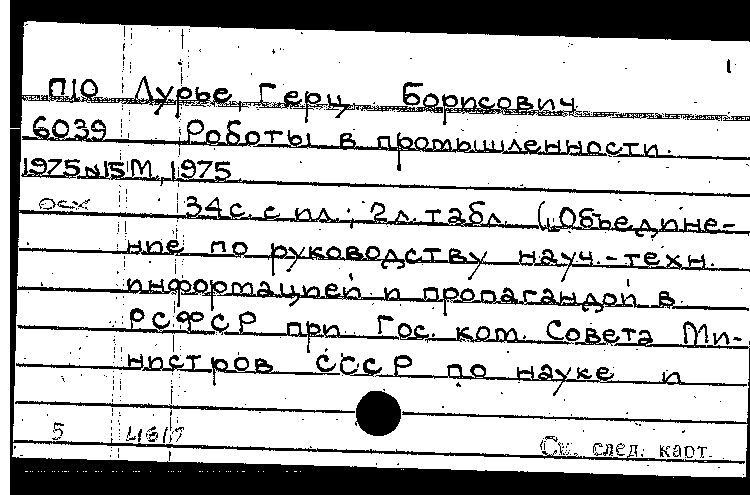 1
П10 Лурье, Герц Борисович
6039 Роботы в промышленности.
1975 №15 М, 1975
осх 34 с. с ил.; 2 л. табл. („Объедине-
ние по руководству науч.-техн.
информацией и пропагандой в
РСФСР при Гос. ком. Совета Ми-
нистров СССР по науке и
5
См. след. карт.